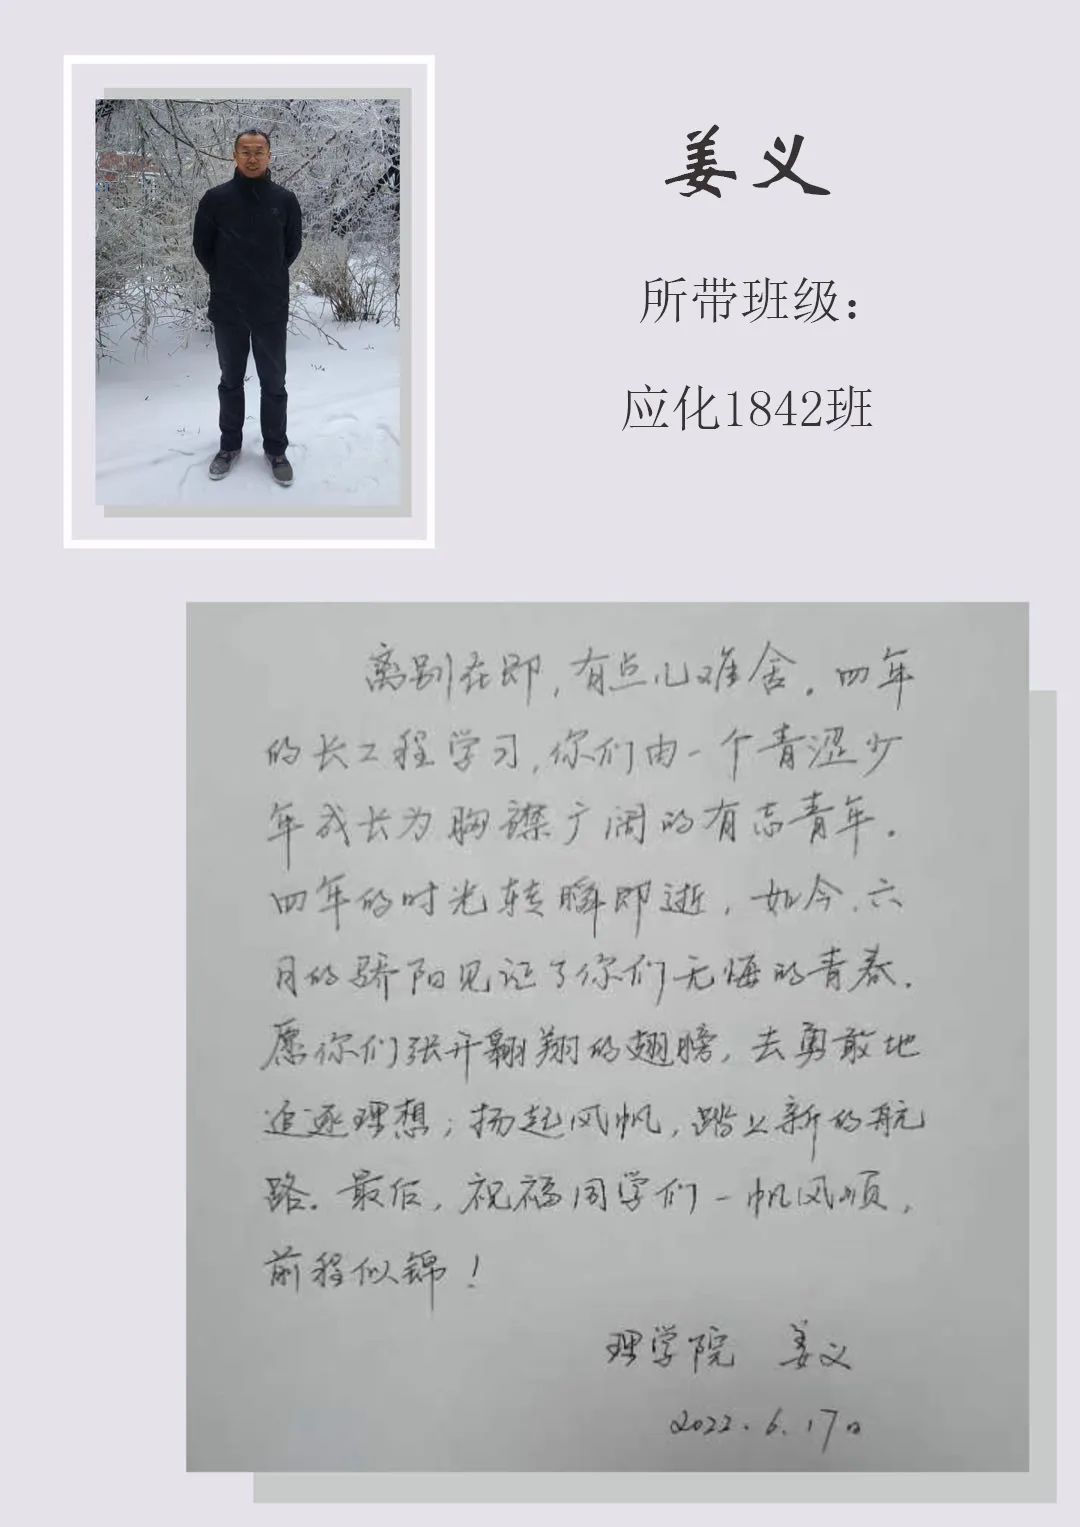 姜义
所带班级：
应化1842班
离别在即，有点儿难舍。四年
的长工程学习，你们由一个青涩少
年成长为胸襟广阔的有志青年。
四年的时光转瞬即逝，如今，六
月的骄阳见证了你们无悔的青春。
愿你们张开翱翔的翅膀，去勇敢地
追逐理想；扬起风帆，踏上新的航
路。最后，祝福同学们一帆风顺，
前程似锦！
理学院 姜义
2022.6.17日